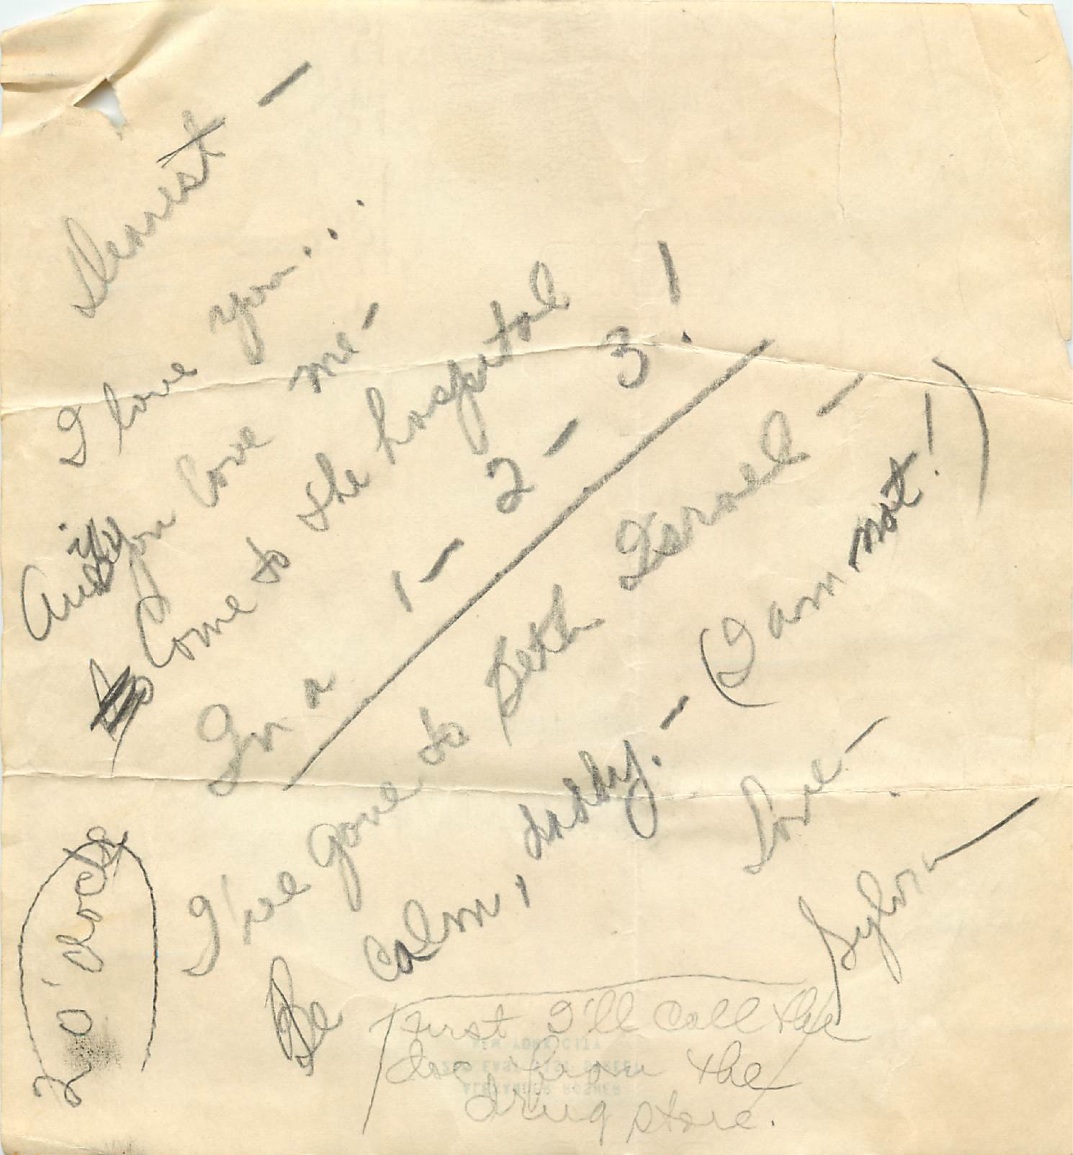 Dearest –
I love you...
And if you love me –
Come to the hospital
In a 1 – 2 – 3!
I've gone to Beth Israel –
Be calm, daddy. – (I am not!)
Love –
Sylvia
2 o'clock
First I'll call the
doc from the
drug store.
NEW YORK CITY
ALEXANDER POSNER